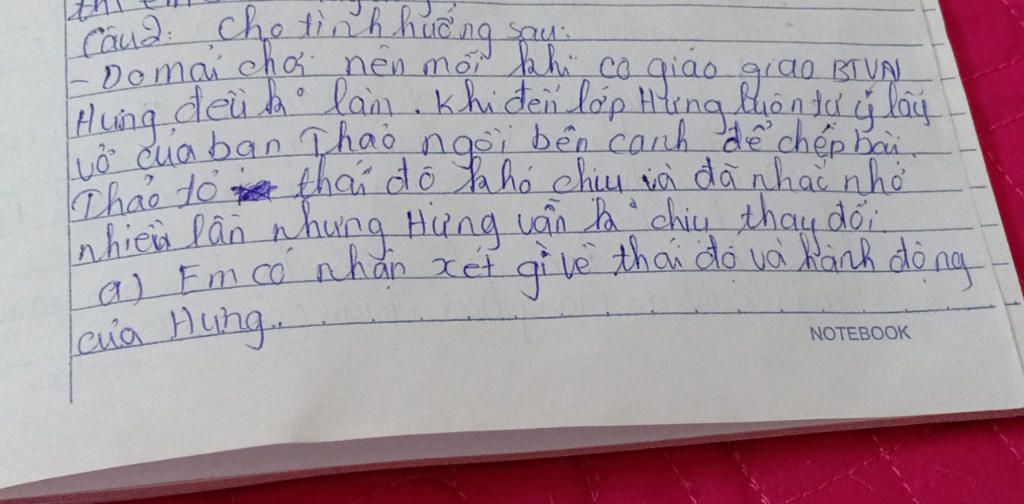 Câu2: Cho tình huống sau:
- Do mải chơi nên mỗi khi cô giáo giao BTVN
Hưng đều k° làm. Khi đến lớp Hưng luôn tự ý lấy
vở của bạn Thảo ngồi bên cạnh để chép bài.
Thảo tỏ thái độ khó chịu và đã nhắc nhở
nhiều lần nhưng Hưng vẫn k° chịu thay đổi.
a) Em có nhận xét gì về thái độ và hành động
của Hưng.
NOTEBOOK